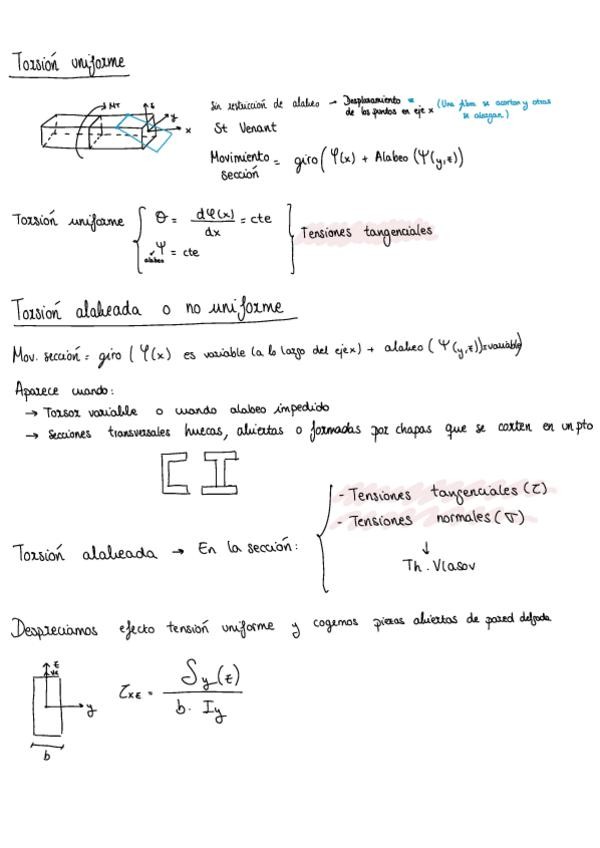 Torsión uniforme
MT
z
y
x
Sin restricción de alabeo → Desplazamiento de los puntos en eje x (Una fibra se acortan y otras se alargan)
St Venant
Movimiento sección = giro (φ(x) + Alabeo (Ψ(y,z))
Torsión uniforme { θ = dφ(x)/dx = cte
Ψ = cte
alabeo
Tensiones tangenciales
Torsión alabeada o no uniforme
Mov. sección = giro (φ(x) es variable (a lo largo del eje x) + alabeo (Ψ(y,z)) = variable)
Aparece cuando:
→ Torsor variable o cuando alabeo impedido
→ Secciones transversales huecas, abiertas o formadas por chapas que se corten en un pto
Torsión alabeada → En la sección:
- Tensiones tangenciales (τ)
- Tensiones normales (σ)
↓
Th. Vlasov
Despreciamos efecto tensión uniforme y cogemos piezas abiertas de pared delgada
z
y
b
τxz = Sy(z) / b · Iy